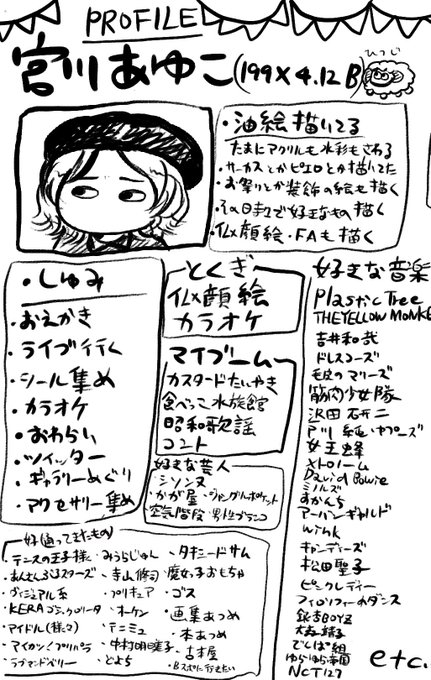 PROFILE
宮川あゆこ(199X4.12B)
ひつじ
・油絵描いてる
たまにアクリルも水彩もさわる
・サーカスとかピエロとか描いてた
・お祭りとか装飾の絵も描く
・その日その日で好きなもの描く
・似顔絵・FAも描く
・しゅみ
・おえかき
・ライブ行く
・シール集め
・カラオケ
・おわらい
・ツイッター
・ギャラリーめぐり
・アクセサリー集め
とくぎ
似顔絵
カラオケ
マイブーム
カスタードたいやき
食べっこ水族館
昭和歌謡
コント
好きな芸人
・シソンヌ
・かが屋・ジャングルポケット
・空気階段・男性ブランコ
好きな音楽
Plastic Tree
THE YELLOW MONKE
吉井和哉
ドレスコーズ
毛皮のマリーズ
筋肉少女隊
沢田研二
戸川純・ヤプーズ
女王蜂
メトロノーム
David Bowie
ミオヤマザキ
おかんち
アーバンギャルド
Wink
キャンディーズ
松田聖子
ピンクレディー
フィロソフィーのダンス
銀杏BOYZ
大森靖子
でんぱ組
ゆらゆら帝国
NCT127
etc.
好(通ってきたもの)
・テニスの王子様
・あんさんぶるスターズ
・ヴィジュアル系
・KERA ゴシックロリータ
・アイドル(様々)
・アイカツ!プリパラ
・ラブアンドベリー
・みうらじゅん
・寺山修司
・プリキュア
・オーケン
・テニミュ
・中村明日美子
・とよち
・タキシードサム
・魔女っ子おもちゃ
・ゴス
・画集あつめ
・本あつめ
・古本屋
・Bスポリに行きたい